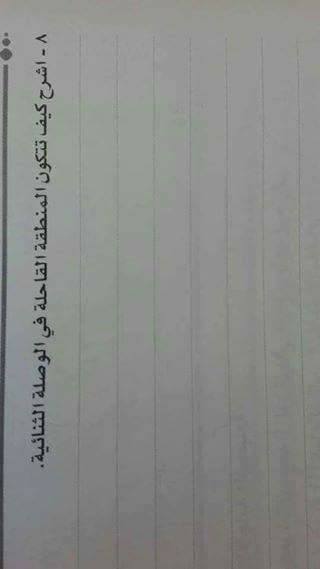 ٨ - اشرح كيف تتكون المنطقة القاحلة في الوصلة الثنائية.